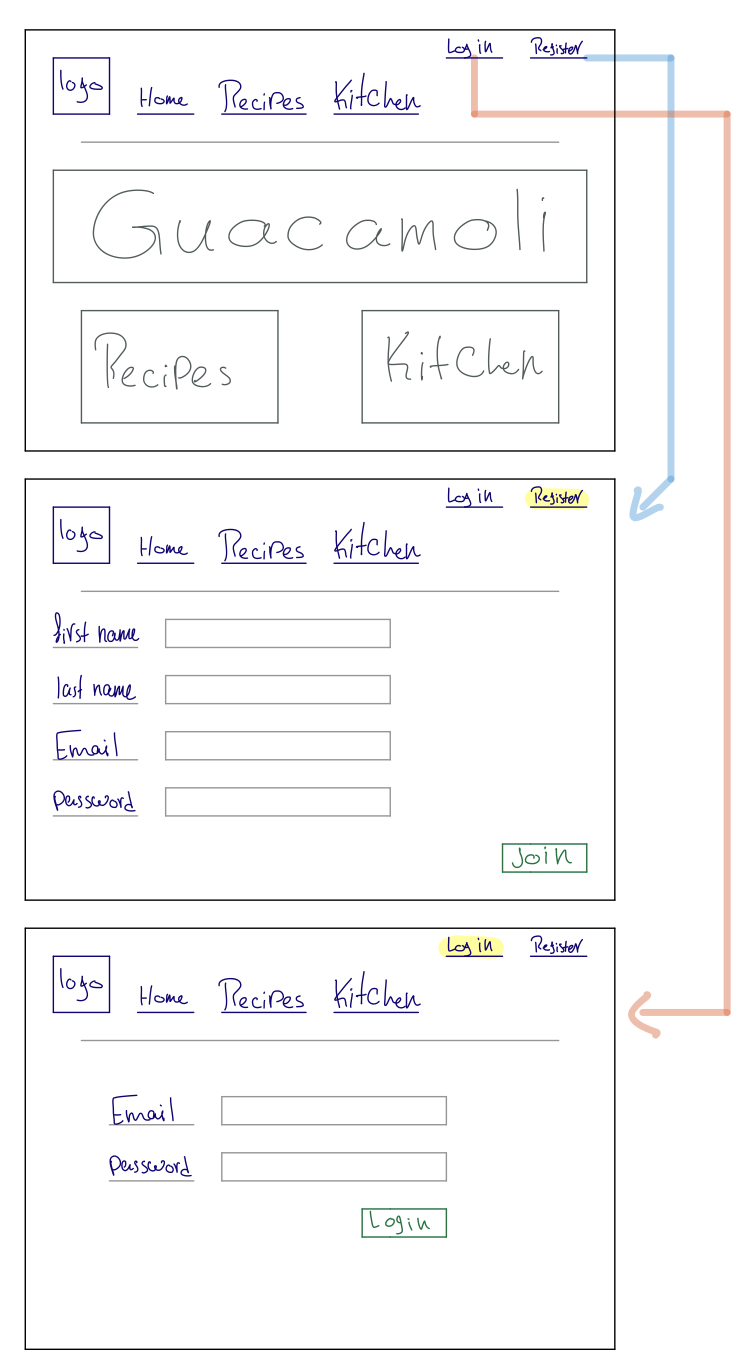 Log in Register
logo Home Recipes Kitchen
Guacamoli
Recipes Kitchen
Log in Register
logo Home Recipes Kitchen
first name
last name
Email
Password
Join
Log in Register
logo Home Recipes Kitchen
Email
Password
Login